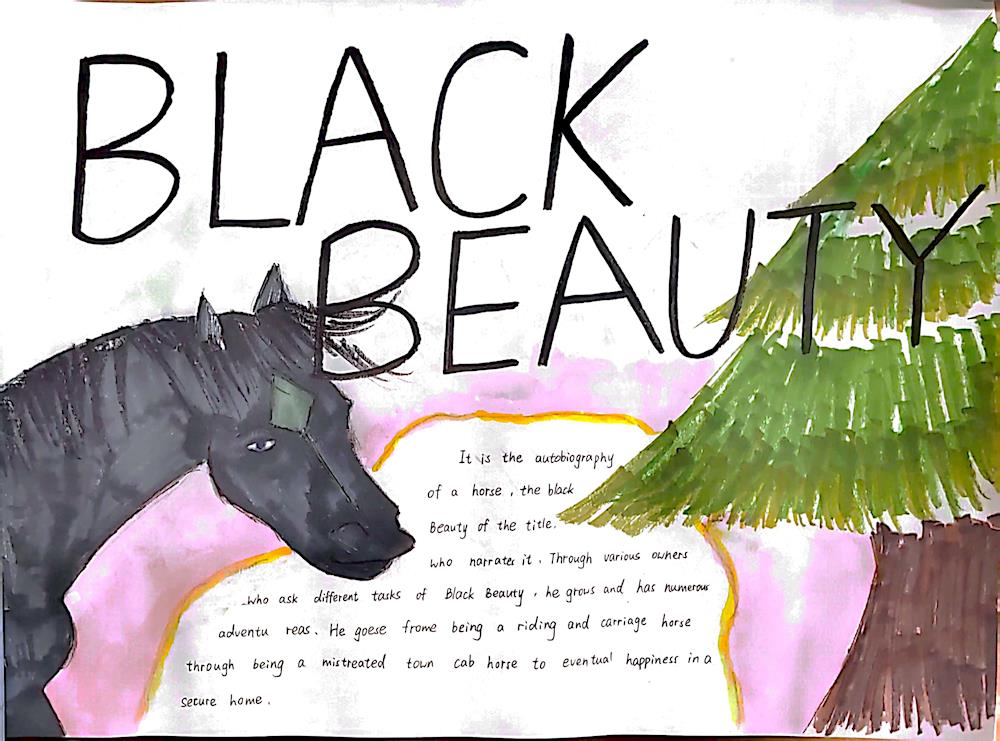 BLACK
BEAUTY
It is the autobiography
of a horse, the black
Beauty of the title.
who narrates it. Through various owners
who ask different tasks of Black Beauty, he grows and has numerous
adventu reas. He goese frome being a riding and carriage horse
through being a mistreated town cab horse to eventual happiness in a
Secure home.